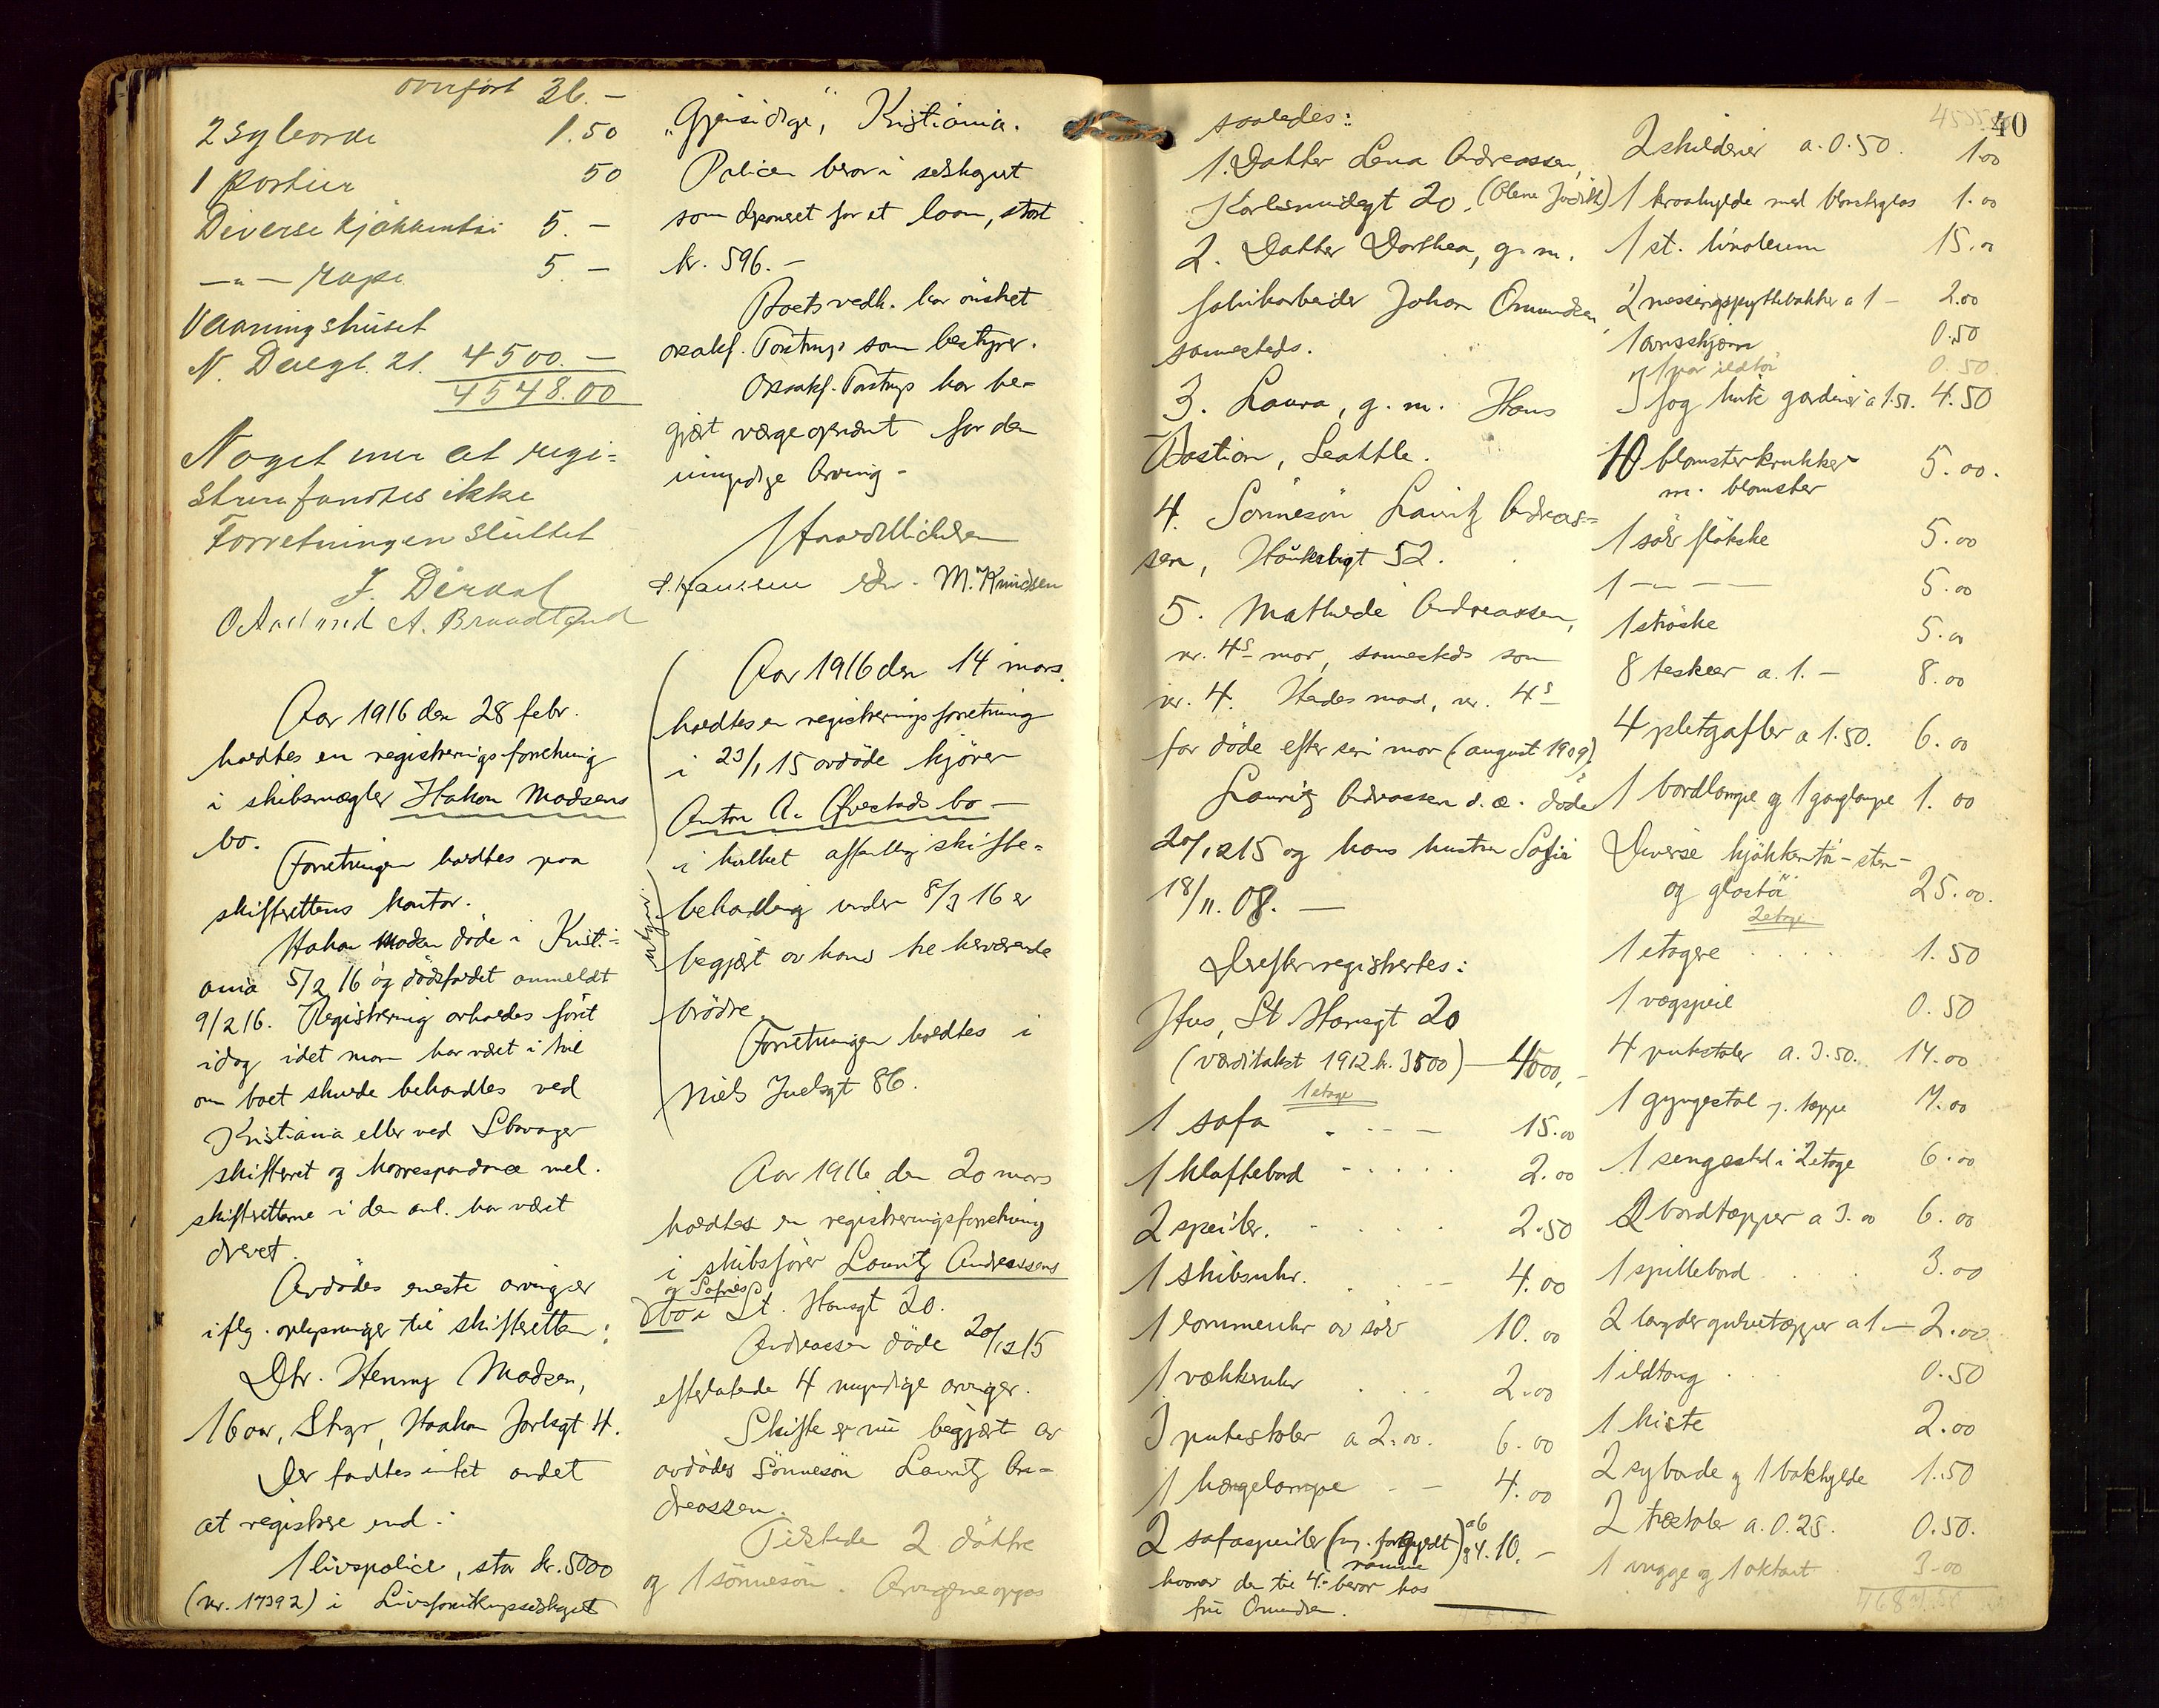 overført 36.–
2 Syborde 1.50
1 portier 50
Diverse kjøkkentøi 5.–
–"– 5.–
Vaaningshuset
N. Dalgt. 21. 4500.–
4548.00
Noget mer at regi-
strere fandtes ikke
Forretningen sluttet
O. Aasland A. Brundtland
Aar 1916 den 28 febr.
holdtes en registreringsforretning
i skibsmægler Hakon Madsens
bo.
Forretningen holdtes paa
skifterettens kontor.
Hakon Madsen døde i Kristi-
ania 5/2 16 og dødsfaldet anmeldt
9/2 16. Registrering avholdes først
idag idet man har været i tvil
om boet skulde behandles ved
Kristiania eller ved Stavanger
skifteret og korrespondance mel.
skifteretterne i den anl. har været
drevet.
Avdødes eneste arving er
iflg. oplysninger til skifteretten:
Dtr. Henny Madsen,
16 aar, Stvgr, Haakon Jarlsgt 4.
Der fandtes intet andet
at registrere end:
1 livspolice, stor kr. 5000
(nr. 17392) i Livsforsikringsselskapet
"Gjensidige", Kristiania.
Policen beror i selskapet
som deponeret for et laan, stort
kr. 596.–
Boets vedk. har ønsket
oksakf. Tastrup som bestyrer.
Oksakf. Tastrup har be-
gjært værge opnævnt for den
umyndige arving –
S. Hanssen M. Knudsen
Aar 1916 den 14 mars.
holdtes en registreringsforretning
i 23/1 15 avdøde kjører
Anton A. Qvestads bo –
i hvilket offentlig skifte-
behandling under 8/3 16 er
begjært av hans tre herværende
brødre.
Forretningen holdtes i
Niels Juelsgt 86.
Aar 1916 den 20 mars
holdtes en registreringsforretning
i skibsfører Lauritz Andreassens
og Sofies
bo i St. Hansgt 20.
Andreassen døde 20/12 15
efterlatende 4 myndige arvinger.
Skifte er nu begjært av
avdødes sønnesøn Lauritz An-
dreassen.
Tilstede 2 døttre
og 1 sønnesøn. Arvingene opgas
40
saaledes:
1. Datter Lena Andreassen,
Karlsminnegt 20. (Olene Judith)
2. Datter Dorthea, g. m.
fabrikarbeider Johan Omundsen,
samesteds.
3. Laura, g. m. Hans
Bastian, Seattle.
4. Sønnesøn Lauritz Andreas-
sen, Haukeligt 52.
5. Mathilde Andreassen,
nr. 4s mor, samesteds som
nr. 4. Hendes mand, nr. 4s
far døde efter sin mor (august 1909)
Lauritz Andreassen d. æ. døde
20/12 15 og hans hustru Sofie
18/11. 08. –
Derefter registrertes:
Hus, St Hansgt 20
(værditakst 1912 kr. 3500) – 4000,–
1 etage
1 sofa 15.00
1 klaffebord 2.00
2 speiler. 2.50
1 skibsuhr. 4.00
1 lommeuhr av sølv 10.00
1 vækkeruhr 2.00
3 putestoler a 2.00. 6.00
1 hængelampe 4.00
2 sofaspeiler (m. forgyldt ramme) a 6 og 4. 10.–
hvorav den til 4.– beror hos
fru Omundsen.
2 skilderier a. 0.50. 1.00
1 kroahylde med blomsterglas 1.00
1 st. linoleum 15.00
2 messingspyttebakker a 1 – 2.00
1 ovnsskjærm 0.50
og 1 par ildtøi 0.50.
3 fag hvite gardiner a 1.50. 4.50
10 blomsterkrukker 5.00.
m. blomster
1 sølv fløtske 5.00
1 – " – – 5.00
1 strøske 5.00
8 teskeer a. 1.– 8.00
4 pletgafler a 1.50. 6.00
1 bordlampe og 1 ganglampe 1.00
Diverse kjøkkentøi – sten –
og glastøi 25.00.
2 etage
1 etagere 1.50
1 vægspeil 0.50
4 putestoler a. 3.50. 14.00
1 gyngestol m. teppe 7.00
1 sengested i 2 etage 6.00
2 bordtæpper a 3.00 6.00
1 spillebord 3.00
2 lengder gulvtæpper a 1.– 2.00
1 ildtang 0.50
1 kiste 2.00
2 syborde og 1 bokhylde 1.50
2 træstoler a. 0.25. 0.50.
1 vugge og 1 oktant 3.00